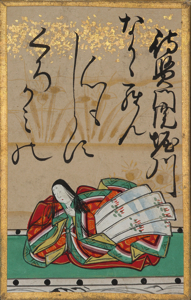 待賢門院堀川
なかゝらん
心もしらす
くろかみの